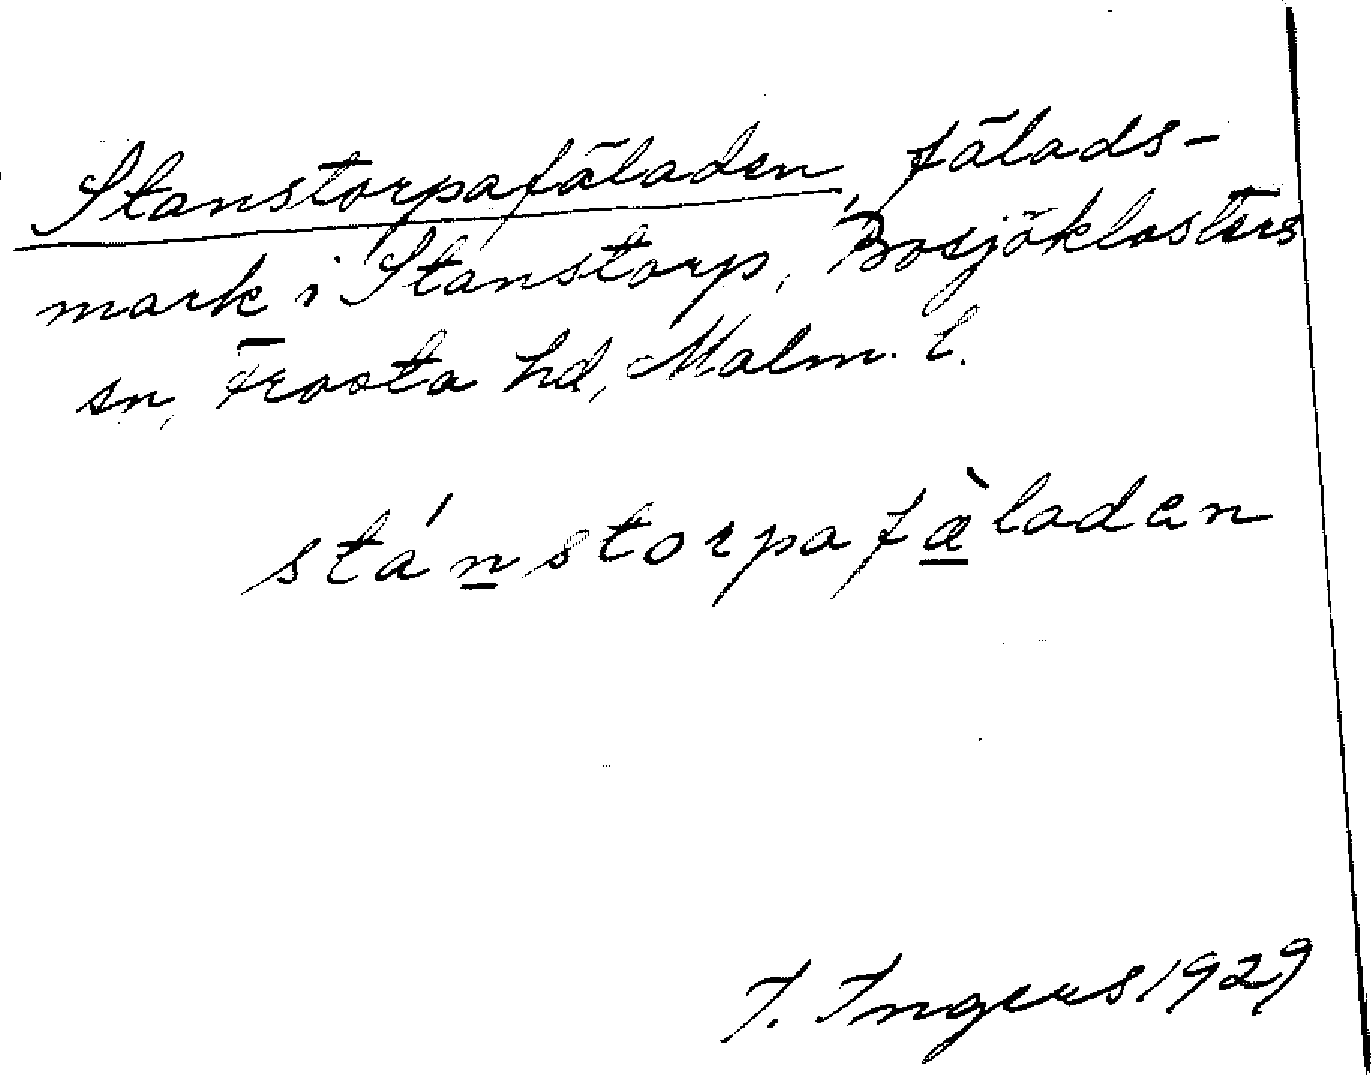 Stanstorpafäladen, fälads-
mark i Stanstorp, Bosjöklosters
sn, Frosta hd, Malm. l.
stánstorpafæ̀laden
I. Ingers 1929